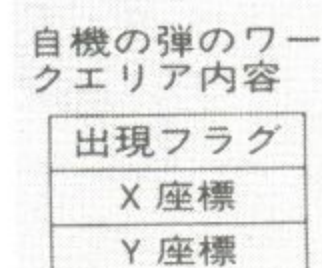 自機の弾のワー
クエリア内容
出現フラグ
X 座標
Y 座標